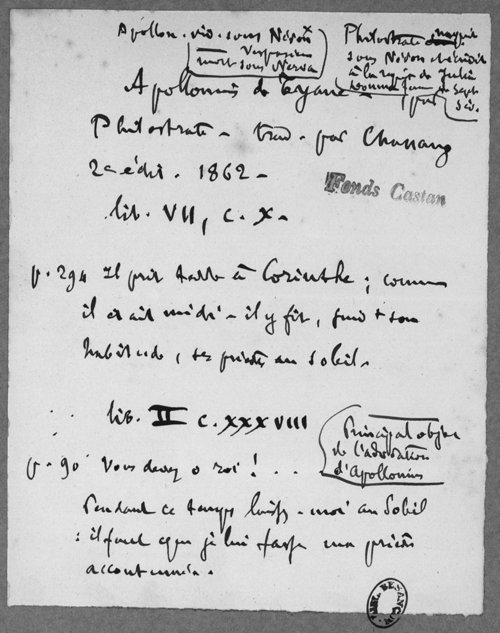 Apollon. vid. sous Néron
Vespasien
mort sous Nerva
Philostrate
sous Néron et
à la Julie
femme Sept
Sév.
Apollonius de Tyane - par
Philostrate - trad. par Chassang
2e édit. 1862 -
lib. VII, c. X -
Fonds Castan
p. 294 Il prit terre à Corinthe ; comme
il était midi - il y fit, suivt son
habitude, ses prières au Soleil.
lib. II c. XXXVIII
Principal objet
de l'adoration
d'Apollonius
p. 90 Vous devez o roi ! . . .
Pendant ce temps laissez-moi au Soleil
: il faut que je lui fasse ma prière
accoutumée.
BESANÇON